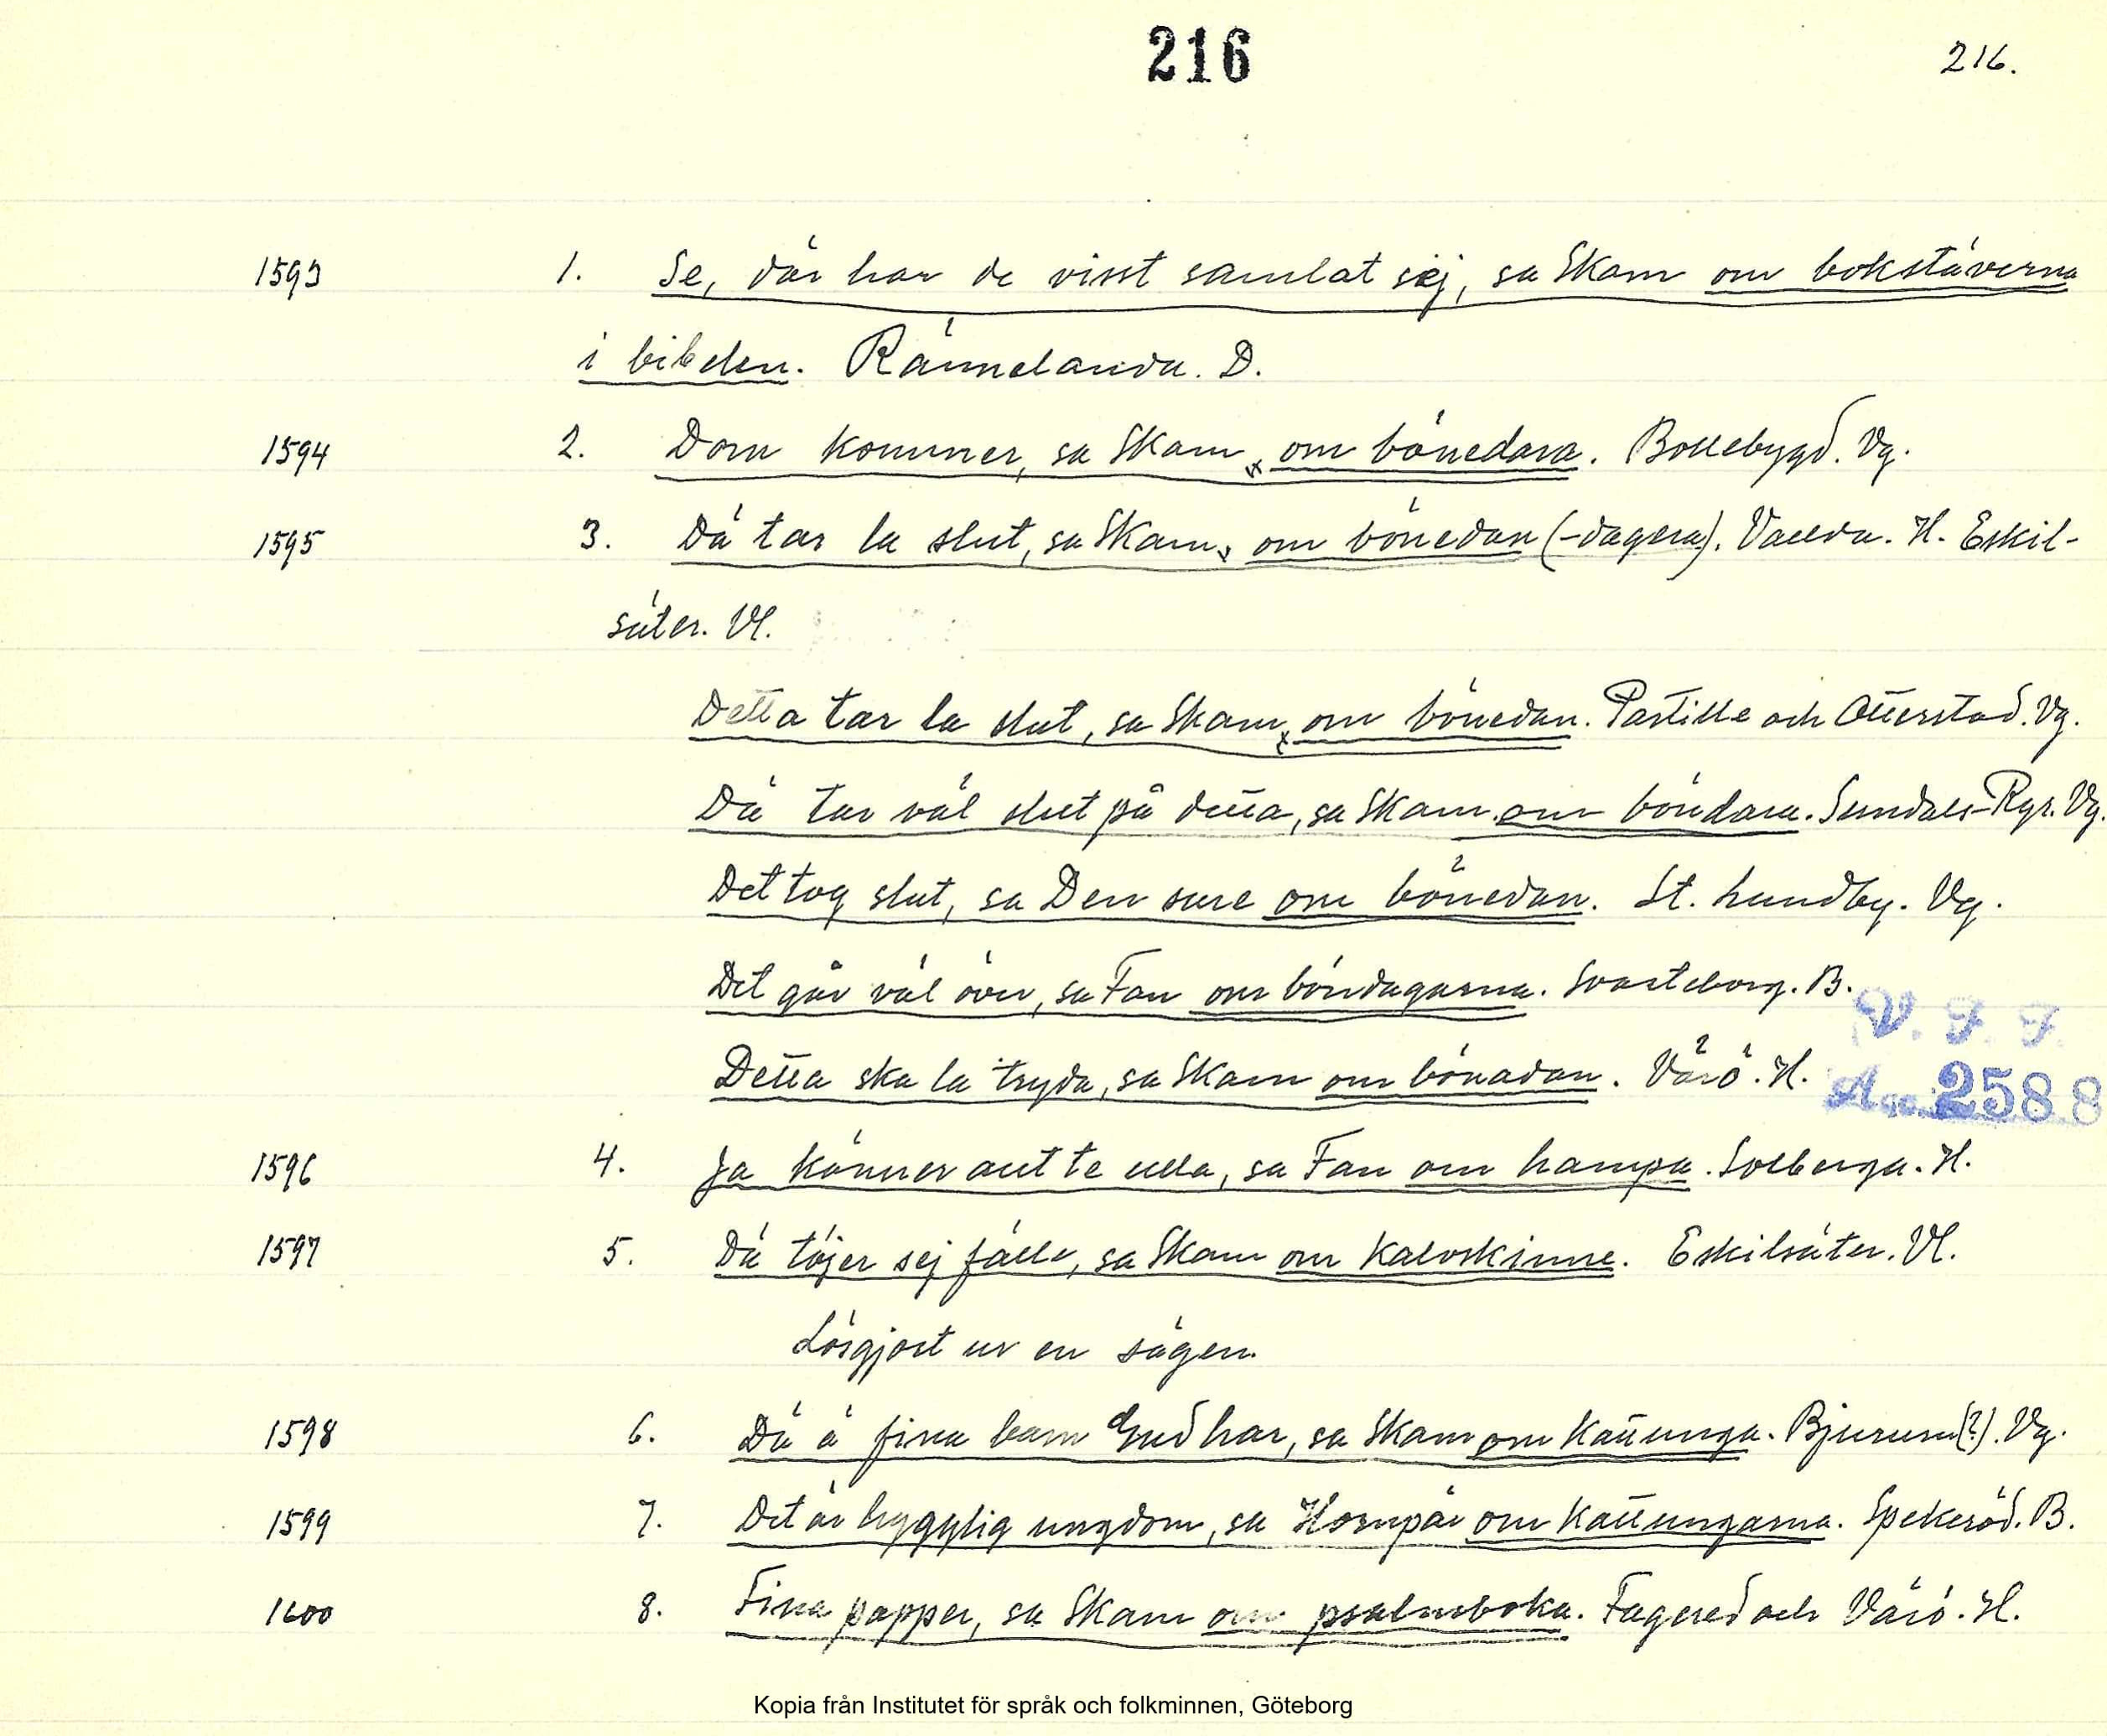 216
216.
1593 1. Se, där har de visst samlat sej, sa Skam om bokstäverna
i bibelen. Rännelanda. D.
1594 2. Dom kommer, sa Skam, om bönedara. Bollebygd. Vg.
1595 3. Dä tar la slut, sa Skam, om bönedan (-dagera). Vallda. H. Eskil-
säter. Vl.
Detta tar la slut, sa Skam, om bönedan. Partille och Otterstad. Vg.
Dä tar väl slut på detta, sa Skam om böndara. Sundals-Ryr. Vg.
Det tog slut, sa Den sure om bönedan. St. Lundby. Vg.
Det går väl över, sa Fan om böndagarna. Svarteborg. B.
V. F. F.
Detta ska la tryda, sa Skam om bönadan. Värö. H.
Acc. 2588
1596 4. Ja känner ant te ulla, sa Fan om hampa. Solberga. H.
1597 5. Dä töjer sej fälle, sa Skam om kalvskinne. Eskilsäter. Vl.
Lösgjort ur en sägen.
1598 6. Dä ä fina barn Gud har, sa Skam om kattunga. Bjurum(?). Vg.
1599 7. Det är hygglig ungdom, sa Hornpär om kattungarna. Spekeröd. B.
1600 8. Fina papper, sa Skam om psalmboka. Fagered och Värö. H.
Kopia från Institutet för språk och folkminnen, Göteborg